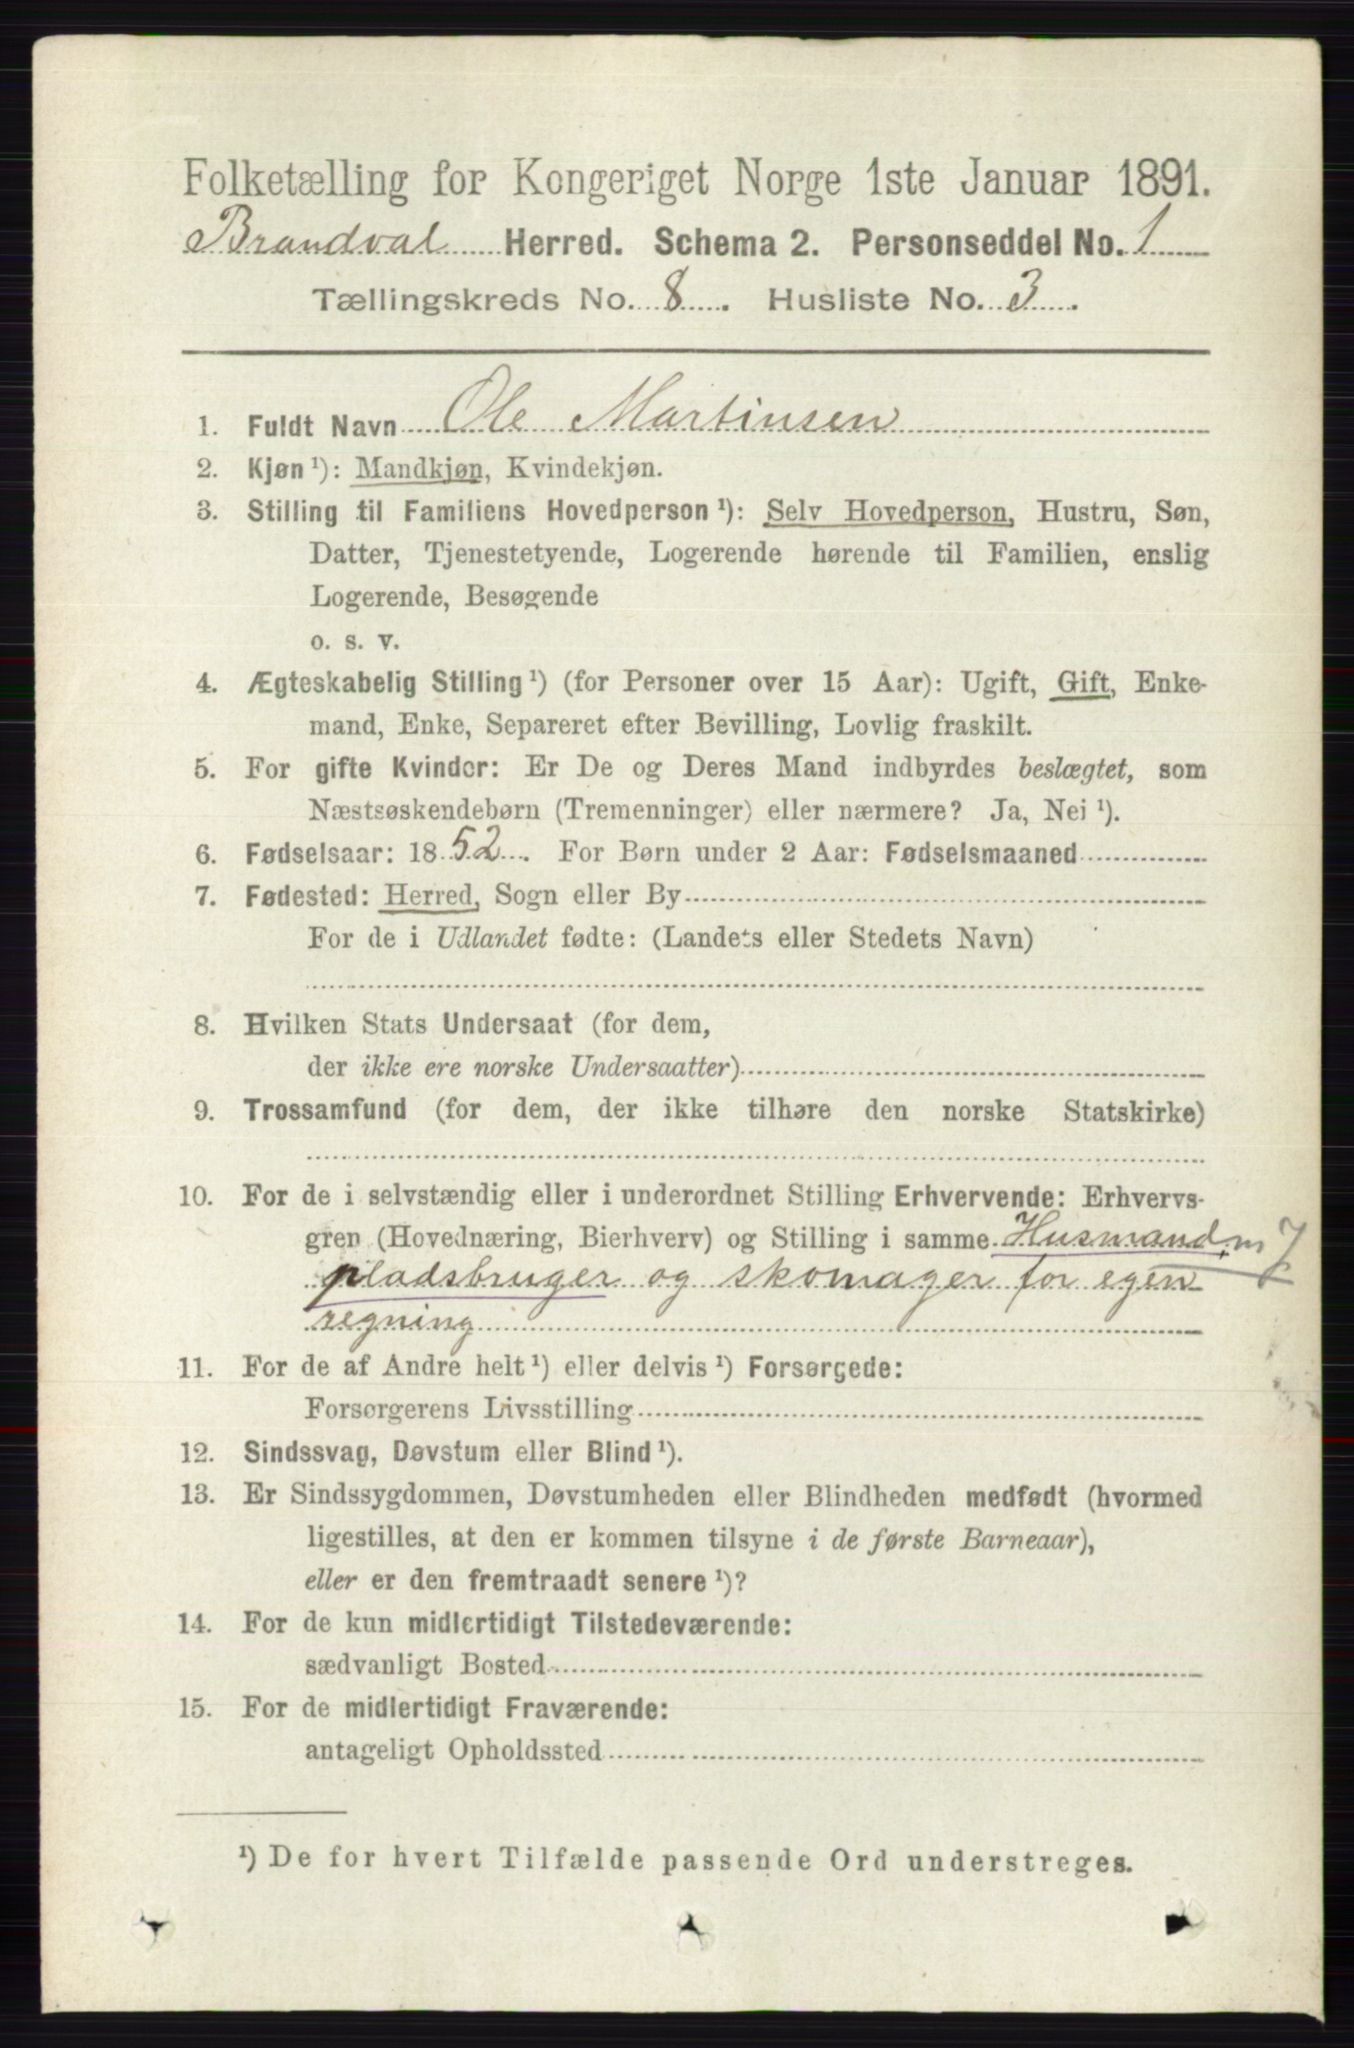 Folketælling for Kongeriget Norge 1ste Januar 1891.
Brandval Herred. Schema 2. Personseddel No. 1
Tællingskreds No. 8. Husliste No. 3.
1. Fuldt Navn Ole Martinsen
2. Kjøn ¹): Mandkjøn, Kvindekjøn.
3. Stilling til Familiens Hovedperson ¹): Selv Hovedperson, Hustru, Søn,
Datter, Tjenestetyende, Logerende hørende til Familien, enslig
Logerende, Besøgende
o. s. v.
4. Ægteskabelig Stilling ¹) (for Personer over 15 Aar): Ugift, Gift, Enke-
mand, Enke, Separeret efter Bevilling, Lovlig fraskilt.
5. For gifte Kvinder: Er De og Deres Mand indbyrdes beslægtet, som
Næstsøskendebørn (Tremenninger) eller nærmere? Ja, Nei ¹).
6. Fødselsaar: 1852. For Børn under 2 Aar: Fødselsmaaned
7. Fødested: Herred, Sogn eller By
For de i Udlandet fødte: (Landets eller Stedets Navn)
8. Hvilken Stats Undersaat (for dem,
der ikke ere norske Undersaatter)
9. Trossamfund (for dem, der ikke tilhøre den norske Statskirke)
10. For de i selvstændig eller i underordnet Stilling Erhvervende: Erhvervs-
gren (Hovednæring, Bierhverv) og Stilling i samme Husmand m J
pladsbruger og skomager for egen
regning
11. For de af Andre helt ¹) eller delvis ¹) Forsørgede:
Forsørgerens Livsstilling
12. Sindssvag, Døvstum eller Blind ¹).
13. Er Sindssygdommen, Døvstumheden eller Blindheden medfødt (hvormed
ligestilles, at den er kommen tilsyne i de første Barneaar),
eller er den fremtraadt senere ¹)?
14. For de kun midlertidigt Tilstedeværende:
sædvanligt Bosted
15. For de midlertidigt Fraværende:
antageligt Opholdssted
¹) De for hvert Tilfælde passende Ord understreges.